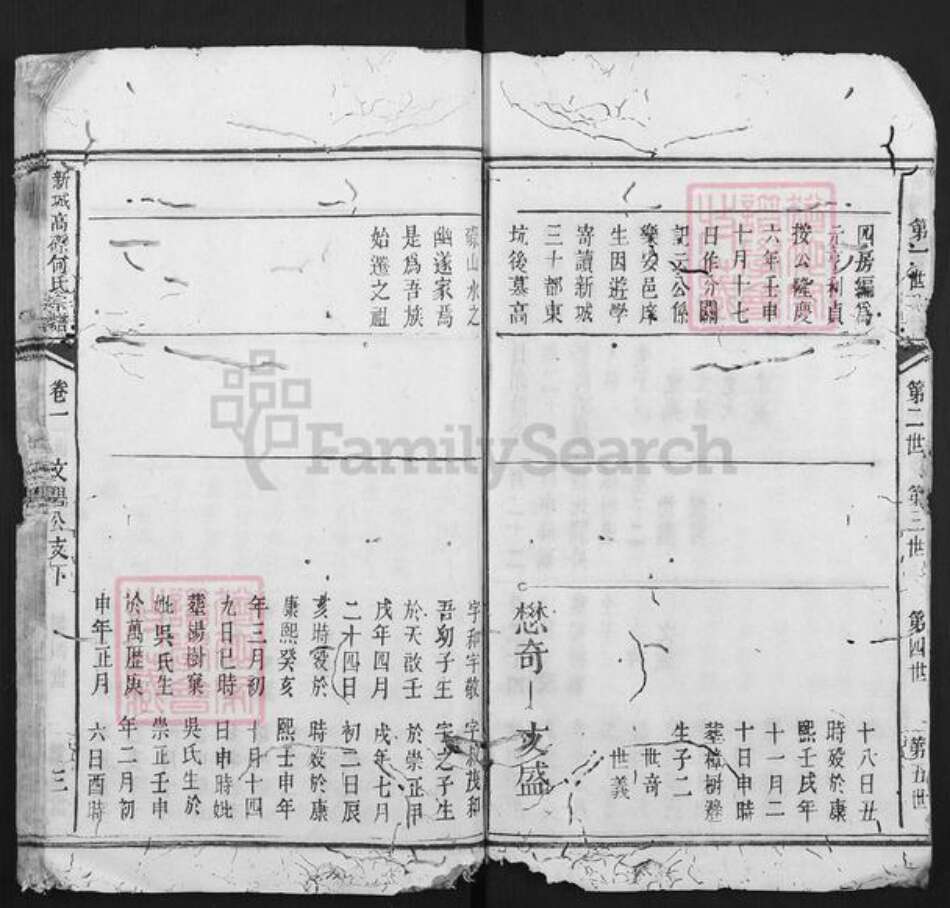 第一世
第二世
第三世
第四世
第五世
四房編為
元亨利貞
按公隆慶
六年壬申
十月十七
日作分關
記元公係
樂安邑庠
生因遊學
寄讀新城
三十部東
坑後慕高
磜山水之
幽邃家焉
是爲吾族
始遷之祖
十八日丑
時殁於康
熙壬戌年
十一月二
十日申時
葬樟樹
生子二
世奇
世義
懋奇
文盛
字和宇敬
吾幼子生
於天啟壬
戌年四月
二十四日
亥時殁於
康熙癸亥
年三月初
九日巳時
葬湯樹窠
妣吳氏生
於萬歷庚
申年正月
字和
宇之子生
於崇正甲
戌年七月
初二日辰
時殁於康
熙壬申年
十月十四
日申時妣
吳氏生於
崇正壬申
年二月初
六日酉時
新城高磜何氏宗譜
卷一
公支下
三
FamilySearch